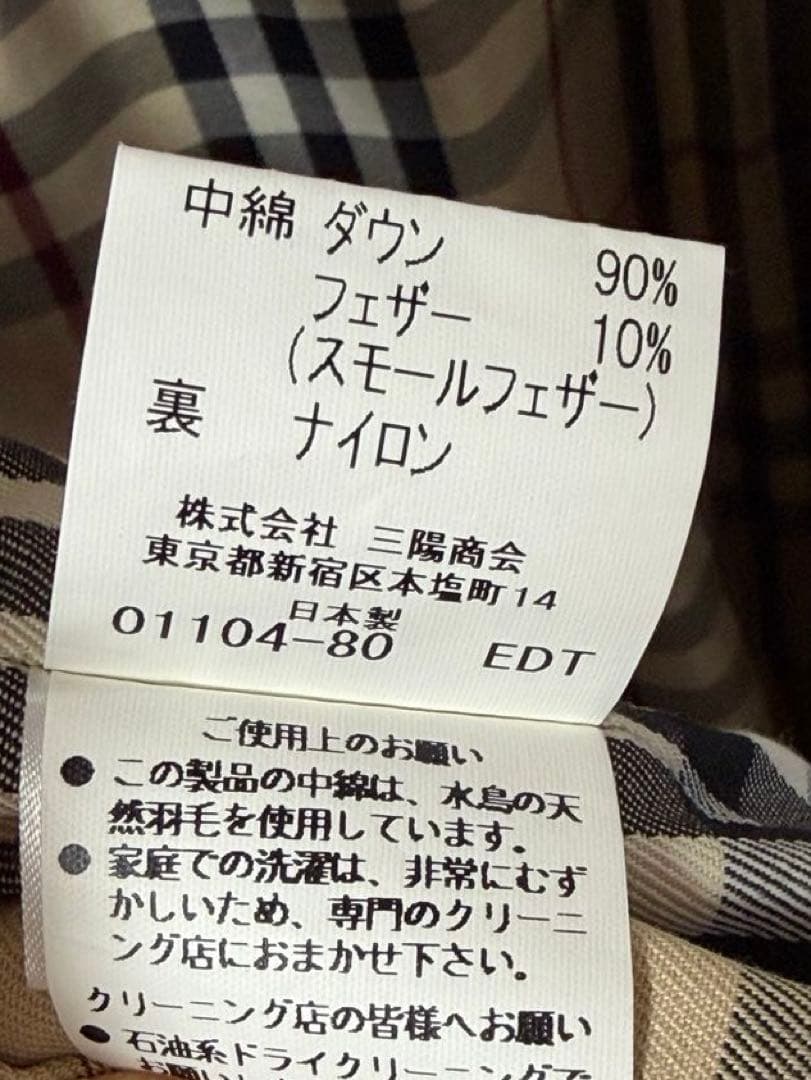 中綿 ダウン 90%
フェザー 10%
(スモールフェザー)
裏 ナイロン
株式会社 三陽商会
東京都新宿区本塩町14
日本製
01104-80 EDT
ご使用上のお願い
● この製品の中綿は、水鳥の天
然羽毛を使用しています。
● 家庭での洗濯は、非常にむず
かしいため、専門のクリーニ
ング店におまかせ下さい。
クリーニング店の皆様へお願い
● 石油系ドライクリーニングで